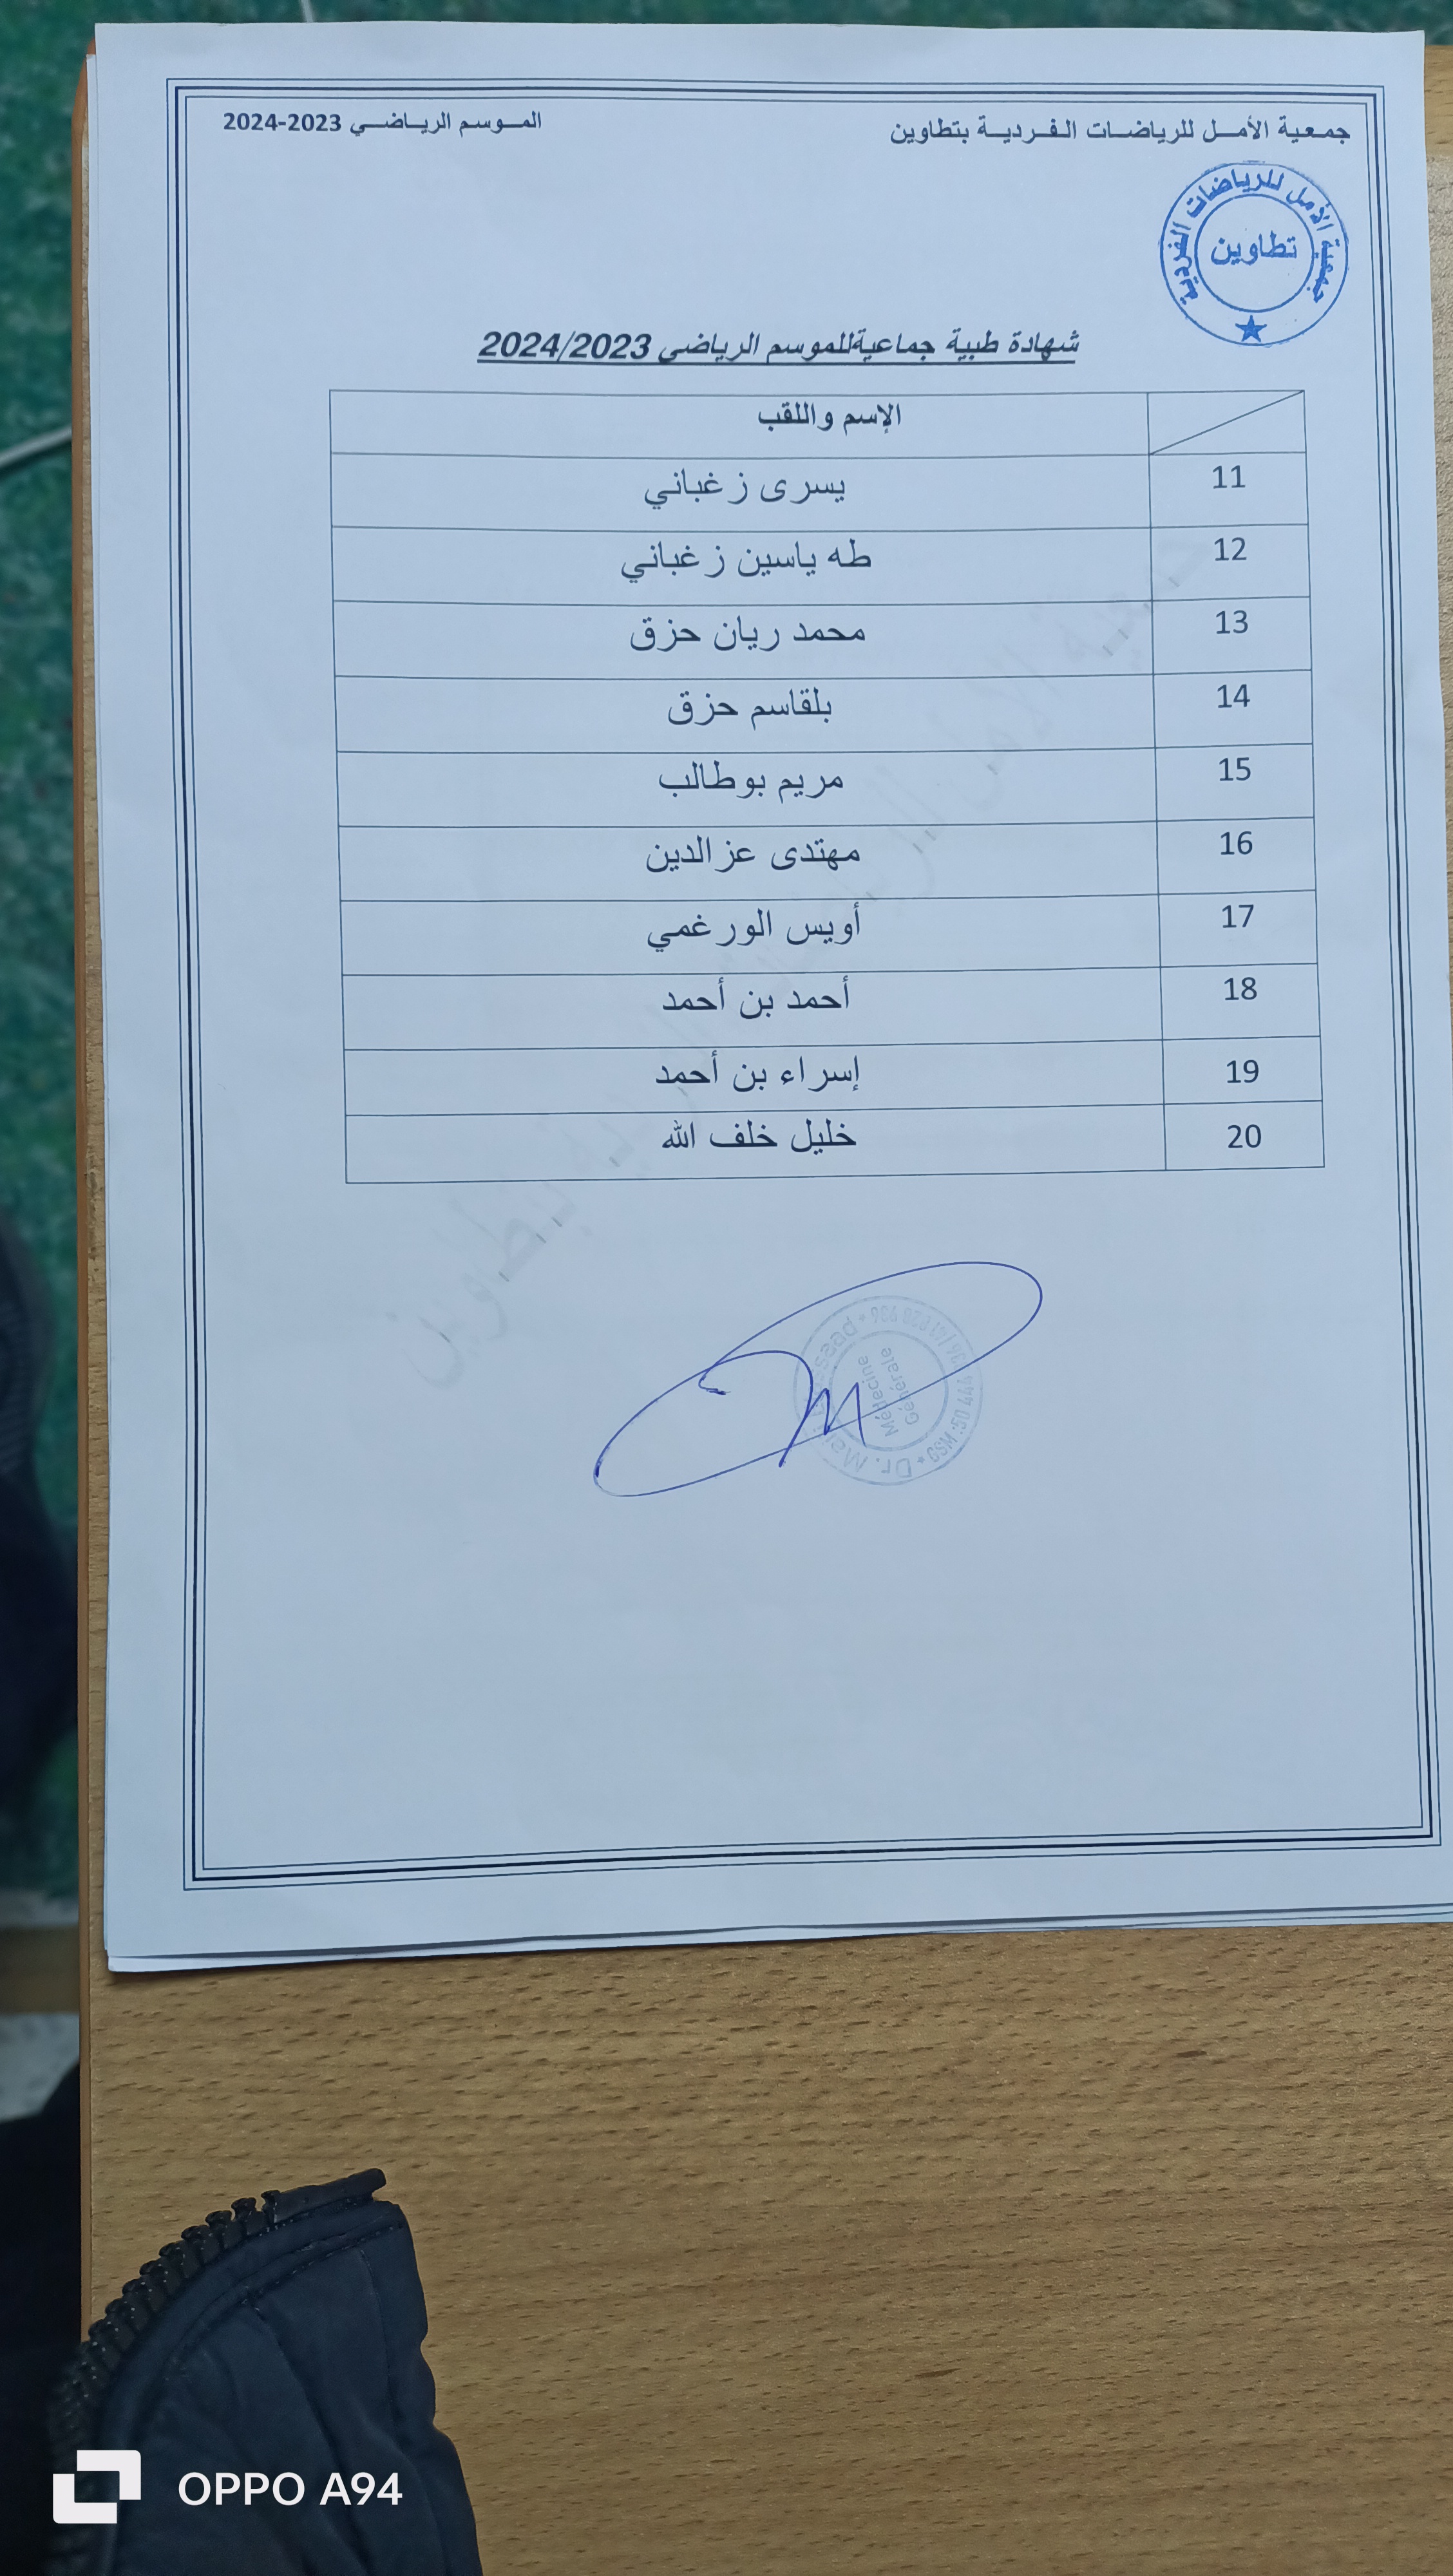 جمعية الأمل للرياضات الفردية بتطاوين
الموسم الرياضي 2023-2024
جمعية الأمل للرياضات الفردية
تطاوين
شهادة طبية جماعيةللموسم الرياضي 2024/2023
الإسم واللقب
11 يسرى زغباني
12 طه ياسين زغباني
13 محمد ريان حزق
14 بلقاسم حزق
15 مريم بوطالب
16 مهتدى عزالدين
17 أويس الورغمي
18 أحمد بن أحمد
19 إسراء بن أحمد
20 خليل خلف الله
Dr.
Médecine
Générale
GSM :50 444
OPPO A94